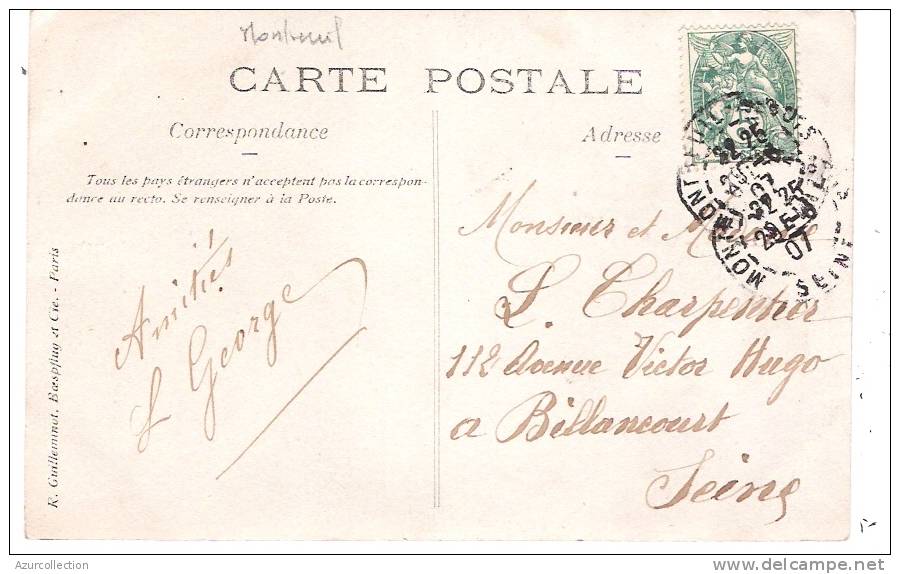 Montreuil
CARTE POSTALE
Correspondance
Adresse
Tous les pays étrangers n'acceptent pas la correspon-
dance au recto. Se renseigner à la Poste.
R. Guilleminot, Bœspflug et Cie. - Paris
Amitiés
L George
Monsieur et Madame
L. Charpentier
112 Avenue Victor Hugo
a Billancourt
Seine
MONTREUIL
BOIS
22 25
07
MONTREUIL
22 25
07
SEINE
Azurcollection
delcampe.net